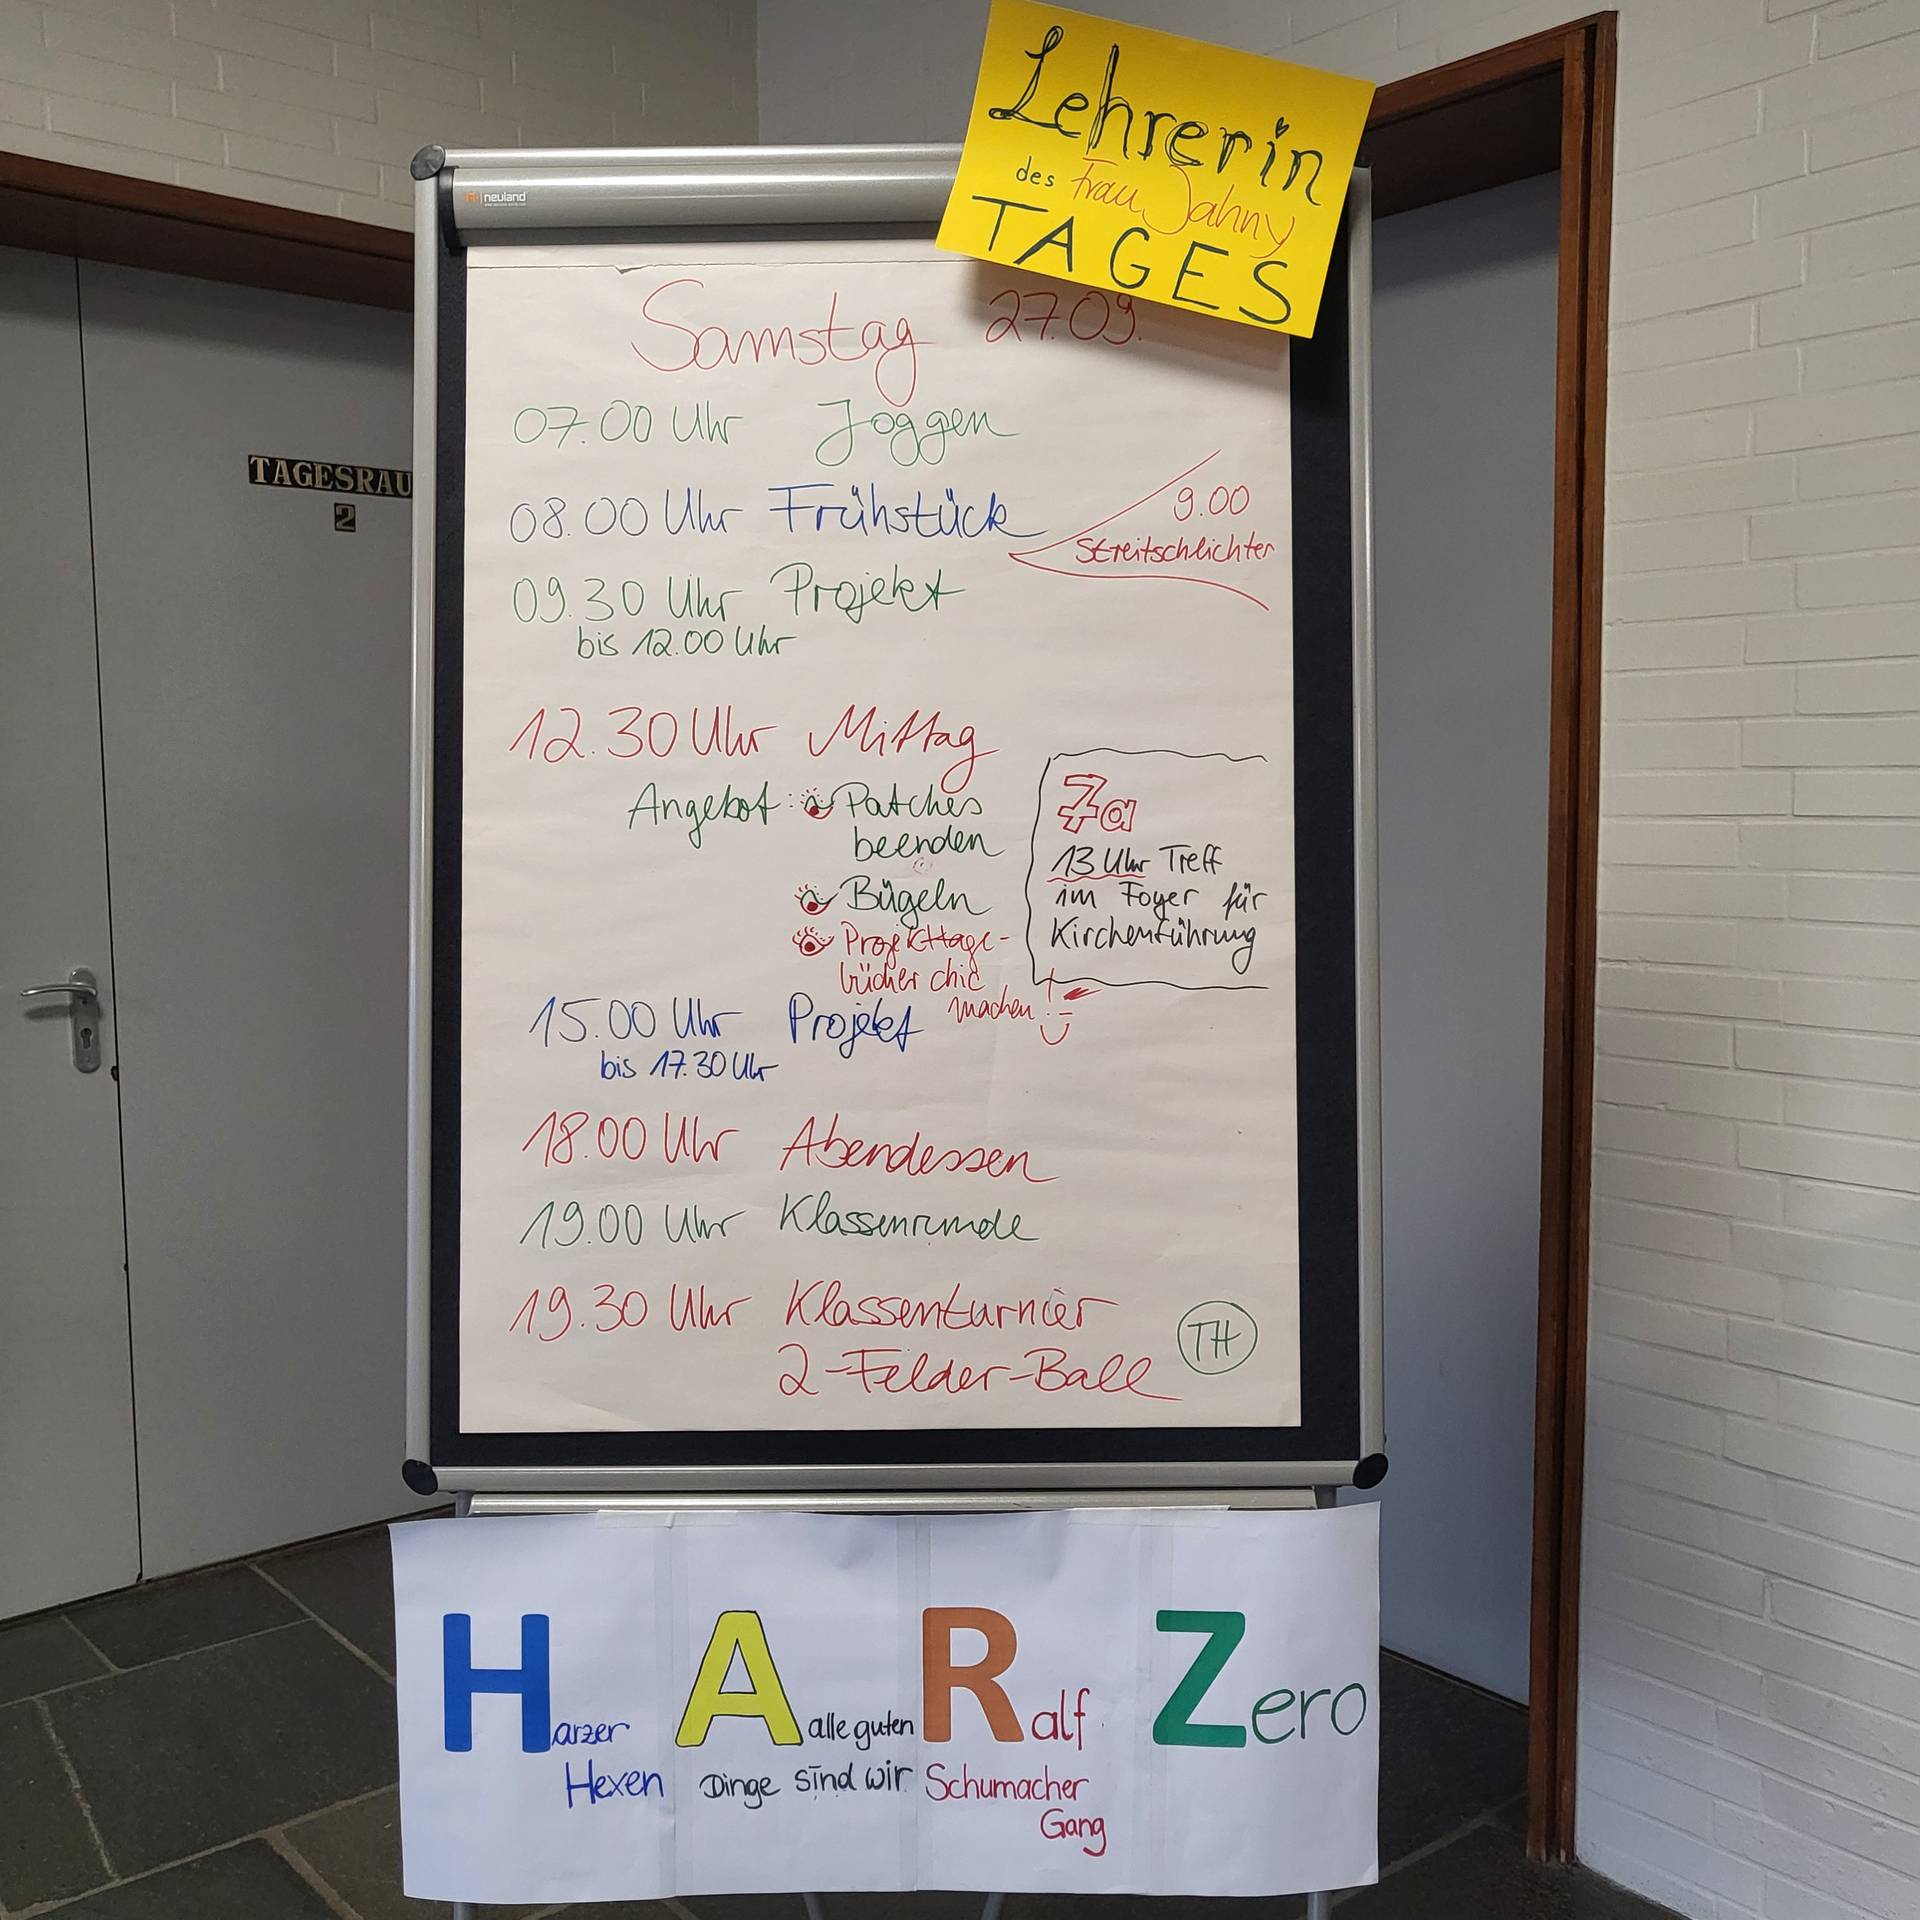 Lehrerin
des Frau Jahny
TAGES
neuland
TAGESRAU
2
Samstag 27.09.
07.00 Uhr Joggen
08.00 Uhr Frühstück
9.00
Streitschlichter
09.30 Uhr Projekt
bis 12.00 Uhr
12.30 Uhr Mittag
Angebot: Patches
beenden
Bügeln
Projekttage-
bücher chic
machen!
7a
13 Uhr Treff
im Foyer für
Kirchenführung
15.00 Uhr Projekt
bis 17.30 Uhr
18.00 Uhr Abendessen
19.00 Uhr Klassenrunde
19.30 Uhr Klassenturnier
2-Felder-Ball
TH
Harzer
Hexen
A alle guten
Dinge sind wir
Ralf
Schumacher
Gang
Zero